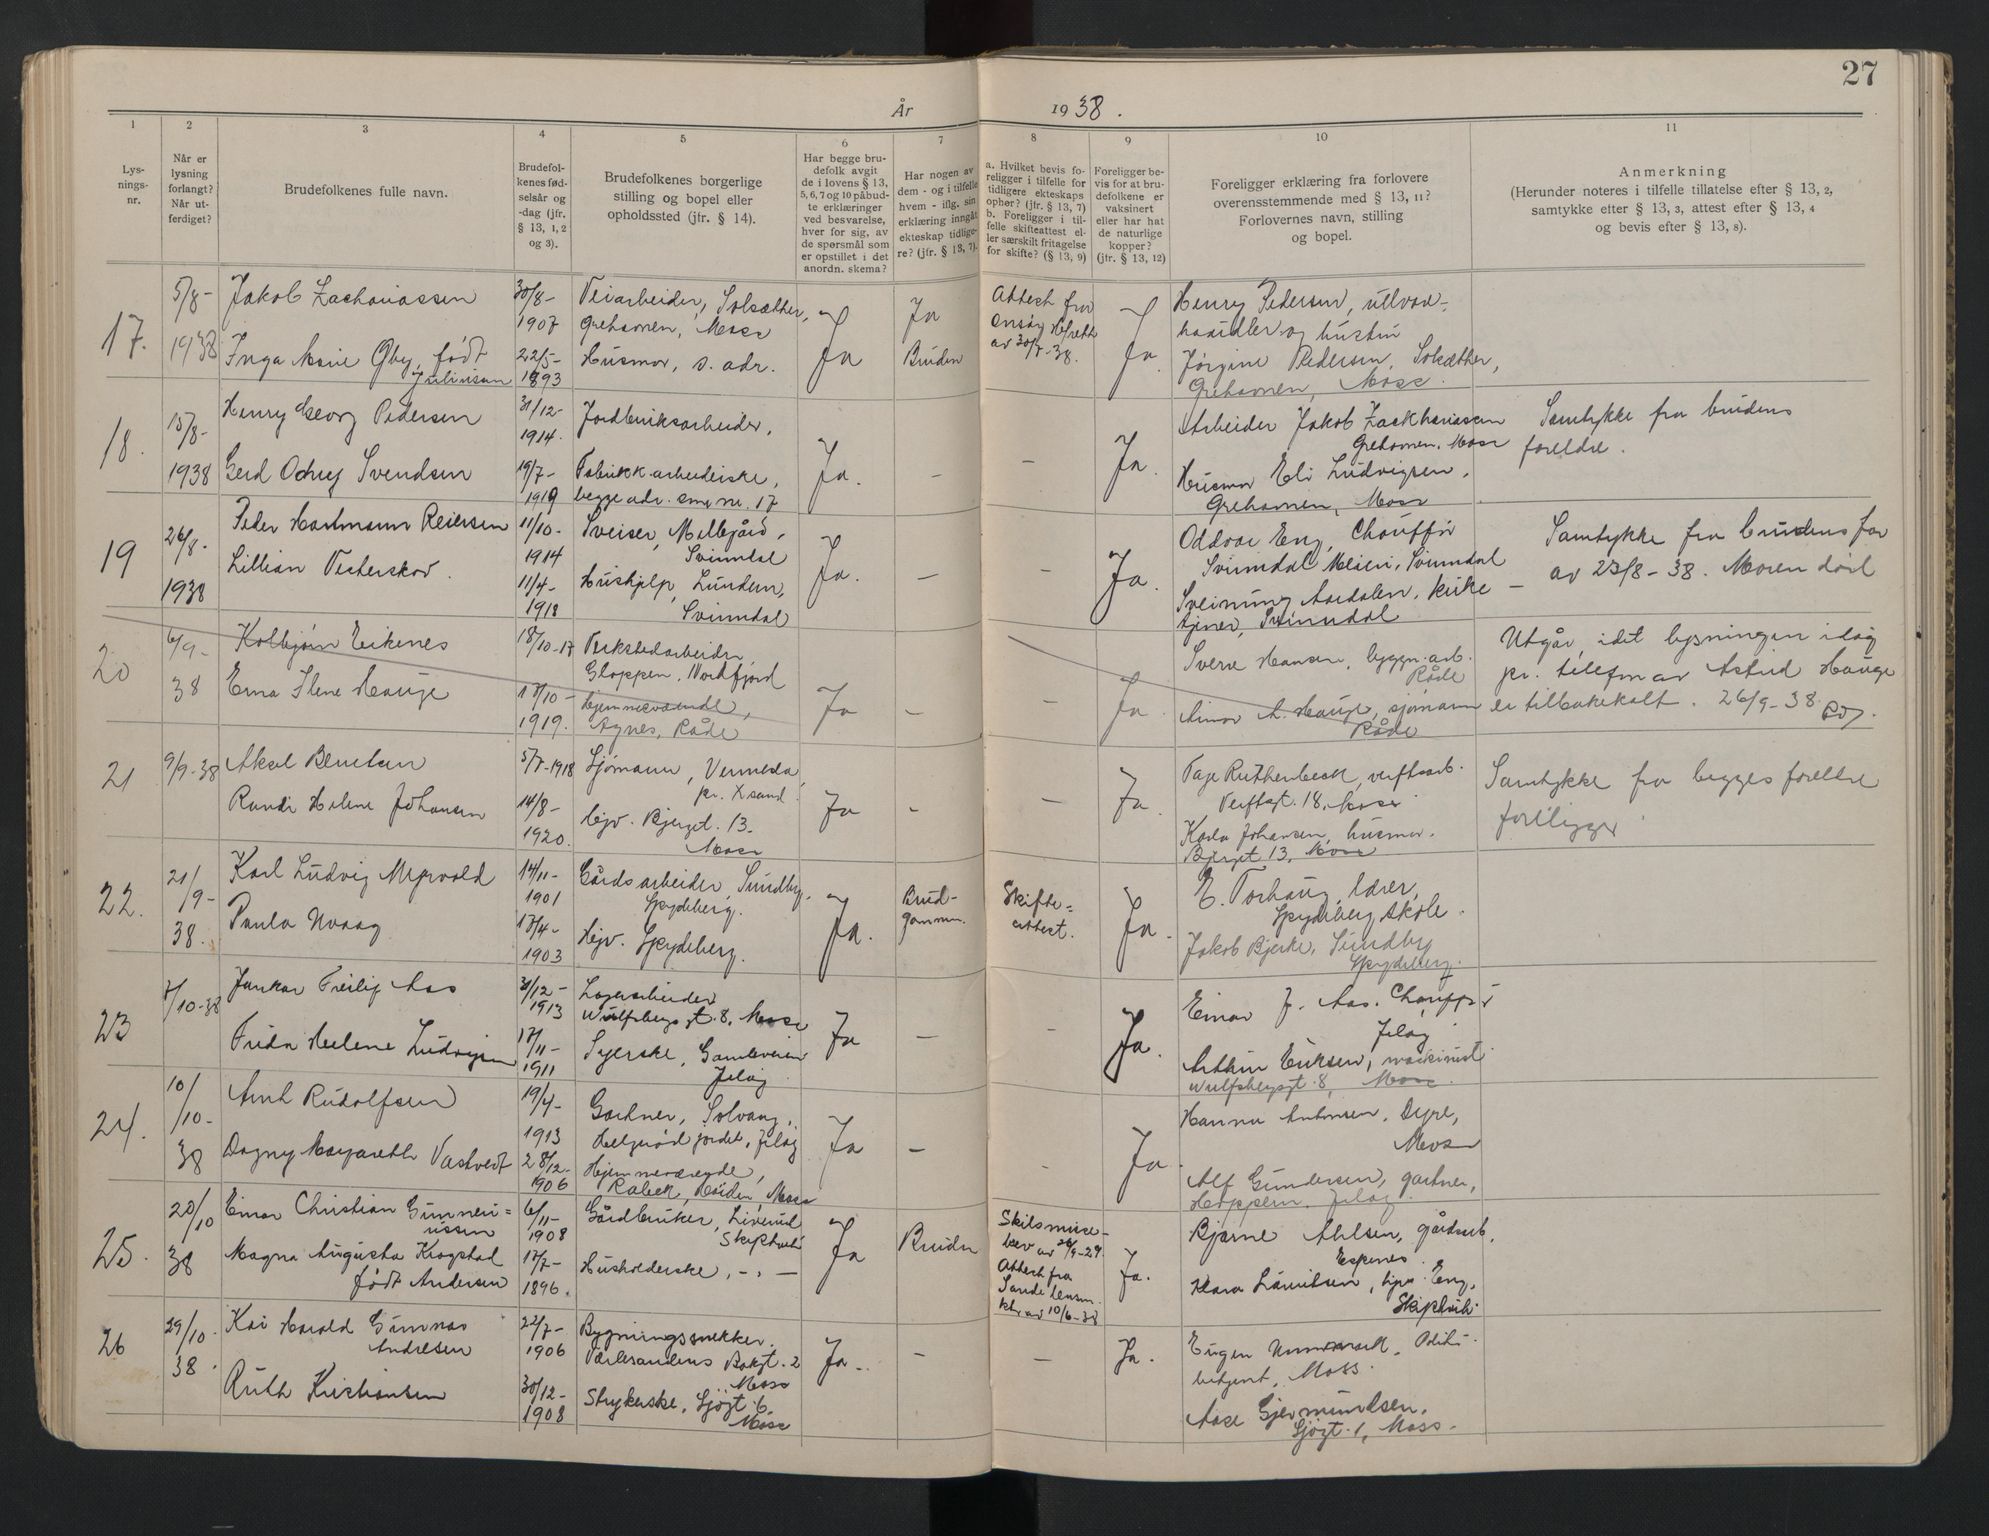 27
År 1938.
1 2 3 4 5 6 7 8 9 10 11
Lys-
nings-
nr.
Når er
lysning
forlangt?
Når ut-
ferdiget?
Brudefolkenes fulle navn.
Brudefol-
kenes fød-
selsår og
-dag (jfr.
§ 13, 1, 2
og 3).
Brudefolkenes borgerlige
stilling og bopel eller
opholdssted (jfr. § 14).
Har begge bru-
defolk avgit
de i lovens § 13,
5, 6, 7 og 10 påbud-
te erklæringer
ved besvarelse,
hver for sig, av
de spørsmål som
er opstillet i det
anordn. skema?
Har nogen av
dem - og i tilfelle
hvem - iflg. sin
erklæring inngått
ekteskap tidlige-
re? (jfr. § 13, 7).
a. Hvilket bevis fo-
religger i tilfelle for
tidligere ekteskaps
ophør? (jfr. § 13, 7)
b. Foreligger i til-
felle skifteattest el-
ler særskilt fritagelse
for skifte? (§ 13, 9)
Foreligger be-
vis for at bru-
defolkene er
vaksinert
eller har hat
de naturlige
kopper?
(jfr. § 13, 12)
Foreligger erklæring fra forlovere
overensstemmende med § 13, 11?
Forlovernes navn, stilling
og bopel.
Anmerkning
(Herunder noteres i tilfelle tillatelse efter § 13, 2,
samtykke efter § 13, 3, attest efter § 13, 4
og bevis efter § 13, 8).
17.
5/8-
1938
Jakob Zachariassen
Inga Marie Øby, født
Juliussen
30/8-
1907
22/5-
1893
Veiarbeider, Solsæther,
Grehamen, Moss
Husmor, s. adr.
Ja
Ja
Ja
Bruden
Attest fra
Onsøy
av 30/7-38.
Ja
Ja.
Henry Pedersen, ullvare-
handler og hustru
Jørgine Pedersen, Solsæther,
Grehamen, Moss.
18.
15/8-
1938
Henry Georg Pedersen
Gerd Odny Svendsen
31/12-
1914.
19/7-
1919
Jordbruksarbeider,
Fabrikkarbeiderske,
begge adr. som nr. 17
Ja.
-
-
Ja.
Arbeider Jakob Zackhariassen
Grehamen, Moss
Husmor Eli Ludvigsen,
Grehamen, Moss
Samtykke fra brudens
foreldre.
19
26/8-
1938
Peder Hartmann Reiersen
Lillian Vesterskov.
11/10-
1914
11/4-
1918
Sveiser, Mellegård,
Svinndal
Hushjelp, Lundern,
Svinndal
Ja.
-
-
Ja.
Oddvar Eng, Chauffør
Svinndal Meieri, Svinndal
Sveinung Aardalen, kirke-
tjener, Svinndal
Samtykke fra brudens far
av 23/8-38. Moren død
20
6/9-
38
Kolbjørn Eikenes
Erna Ilene Hauge
18/10-17
17/10-
1919.
Verkstedarbeider
Gloppen, Nordfjord
Hjemmeværende,
Agnes, Råde
Ja
-
-
Ja.
Sverre Hansen, byggn.arb.
Råde
Einar A. Hauge, sjømann
Råde
Utgår, idet lysningen idag
pr. telefon av Astrid Hauge
er tilbakekalt. 26/9-38.
21
9/9-38
Aksel Berntsen
Randi Helene Johansen
5/7-1918
14/8-
1920.
Sjømann, Vennesla,
pr. Xsand.
Hjv. Bjerget. 13.
Moss
Ja
-
-
Ja.
Tage Ruthenbeck, verftsarb.
Verftsgt. 18, Moss
Karla Johansen, husmor.
Bjerget 13, Moss
Samtykke fra begges foreldre
foreligger
22.
21/9-
38.
Karl Ludvig Myrvold
Paula Nvaag
14/11-
1901
17/4-
1903
Gårdsarbeider, Sundby,
Spydeberg.
Hjv. Spydeberg.
Ja.
Brud-
gommen.
Skifte-
attest.
Ja.
E. Torhaug, lærer,
Spydeberg skole.
Jakob Bjerke, Sundby
Spydeberg.
23
7/10-38
Junkar Freilif Aas
Frida Helene Ludvigsen
31/12-
1913
17/11-
1911
Lagerarbeider
Wulfsbergsgt. 8, Moss
Syerske, Gamleveien
Jeløy
Ja
-
-
Ja.
Einar J. Aas. Chauffør
Jeløy
Arthur Eriksen, maskinist
Wulfsbergsgt. 8, Moss.
24.
10/
10-
38
Arnt Rudolfsen
Dagny Margareth Vastvedt
19/4-
1913
28/12-
1906
Gartner, Solvang,
Helgerød jordet, Jeløy
Hjemmeværende,
Rabek, Høiden, Moss
Ja
-
-
Ja.
Hanna Antonsen, Dyre,
Moss
Alf Gundersen, gartner,
Hoppern, Jeløy.
25.
20/10
38
Einar Christian Gunneri-
ussen
Magna Augusta Krogstad
født Andersen
6/11-
1908
17/7-
1896.
Gårdbruker, Liverud
Skiptvet
Husholderske, -"-
Ja
Bruden
Skilsmisse-
bev av 26/9-29.
Attest fra
Sande lensm.
ktr av 10/6-38
Ja.
Bjarne Ahlsen, gårdsarb.
Espenes.
Klara Lauritsen, hjv. Eng,
Skiptvet.
26
29/10.
38.
Kai Harald Gunnar
Andresen
Ruth Kristiansen
22/7-
1906
30/12-
1908
Bygningssnekker.
Værlesandens Bakgt. 2
Moss
Strykerske, Sjøgt. 6.
Moss
Ja.
-
-
Ja.
Eugen
betjent, Moss.
Aase Gjermundsen.
Sjøgt. 1, Moss.